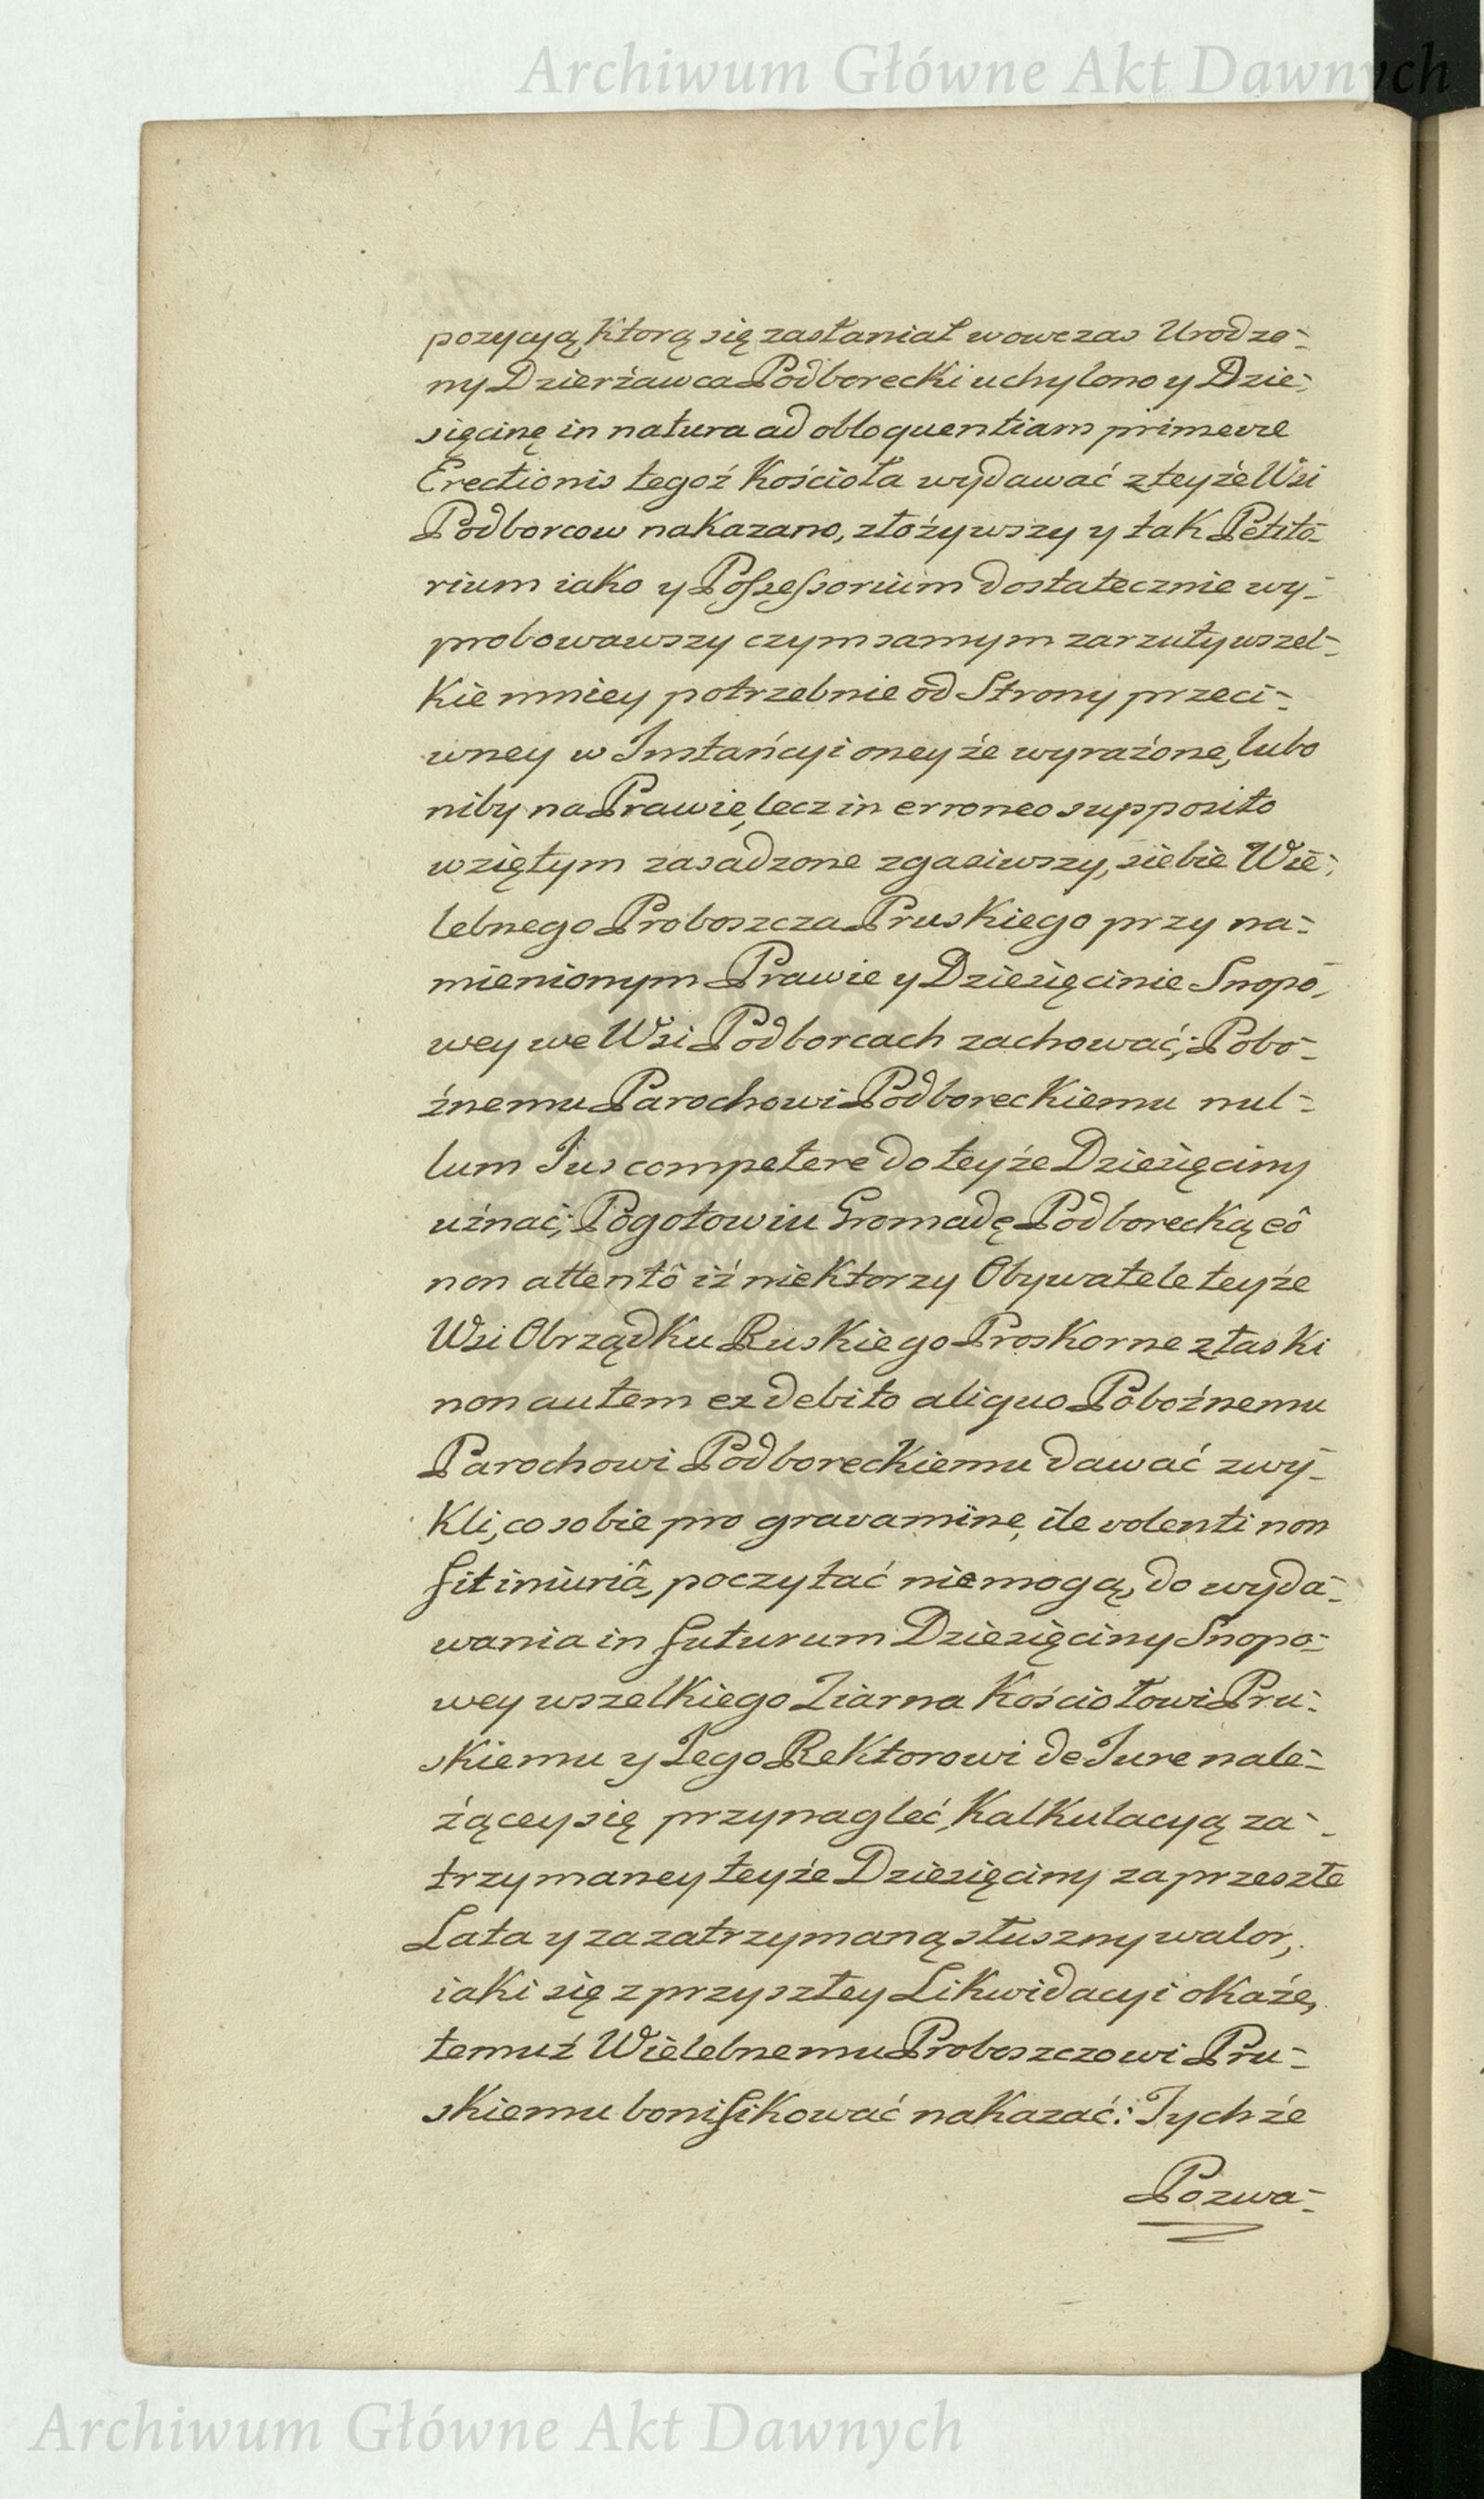 Archiwum Główne Akt Dawnych
pozycyą, ktorą się zasłaniał wowczas Urodzo-
ny Dzierżawca Podborecki uchylono y Dzie-
sięcinę in natura ad obloquentiam primevæ
Erectionis tegoż Kościoła wydawać z teyże Wsi
Podborcow nakazano, złożywszy y tak Petito-
rium iako y Possessorium dostatecznie wy-
probowawszy czym samym zarzuty wszel-
kie mniey potrzebnie od Strony przeci-
wney w Instańcyi oneyże wyrażone, lubo
niby na Prawie, lecz in erroneo supposito
wziętym zasadzone zgasiwszy, siebie Wie-
lebnego Proboszcza Pruskiego przy na-
mienionym Prawie y Dziesięcinie Snopo-
wey we Wsi Podborcach zachować; Pobo-
żnemu Parochowi Podboreckiemu nul-
lum Jus competere do teyże Dziesięciny
uznać; Pogotowiu Gromadę Podborecką eô
non attentô iż niektorzy Obywatele teyże
Wsi Obrządku Ruskiego Proskorne z łaski
non autem ex debito aliquo Pobożnemu
Parochowi Podboreckiemu dawać zwy-
kli, co sobie pro gravamine, ile volenti non
fit iniuriâ, poczytać niemogą, do wyda-
wania in futurum Dziesięciny Snopo-
wey wszelkiego Ziarna Kościołowi Pru-
skiemu y Jego Rektorowi de Jure nale-
żącey się przynagleć, Kalkulacyą za-
trzymaney teyże Dziesięciny za przeszłe
Lata y za zatrzymaną słuszny walor,
iaki się z przyszłey Likwidacyi okaże,
temuż Wielebnemu Proboszczowi Pru-
skiemu bonifikować nakazać: Tychże
Pozwa-
Archiwum Główne Akt Dawnych